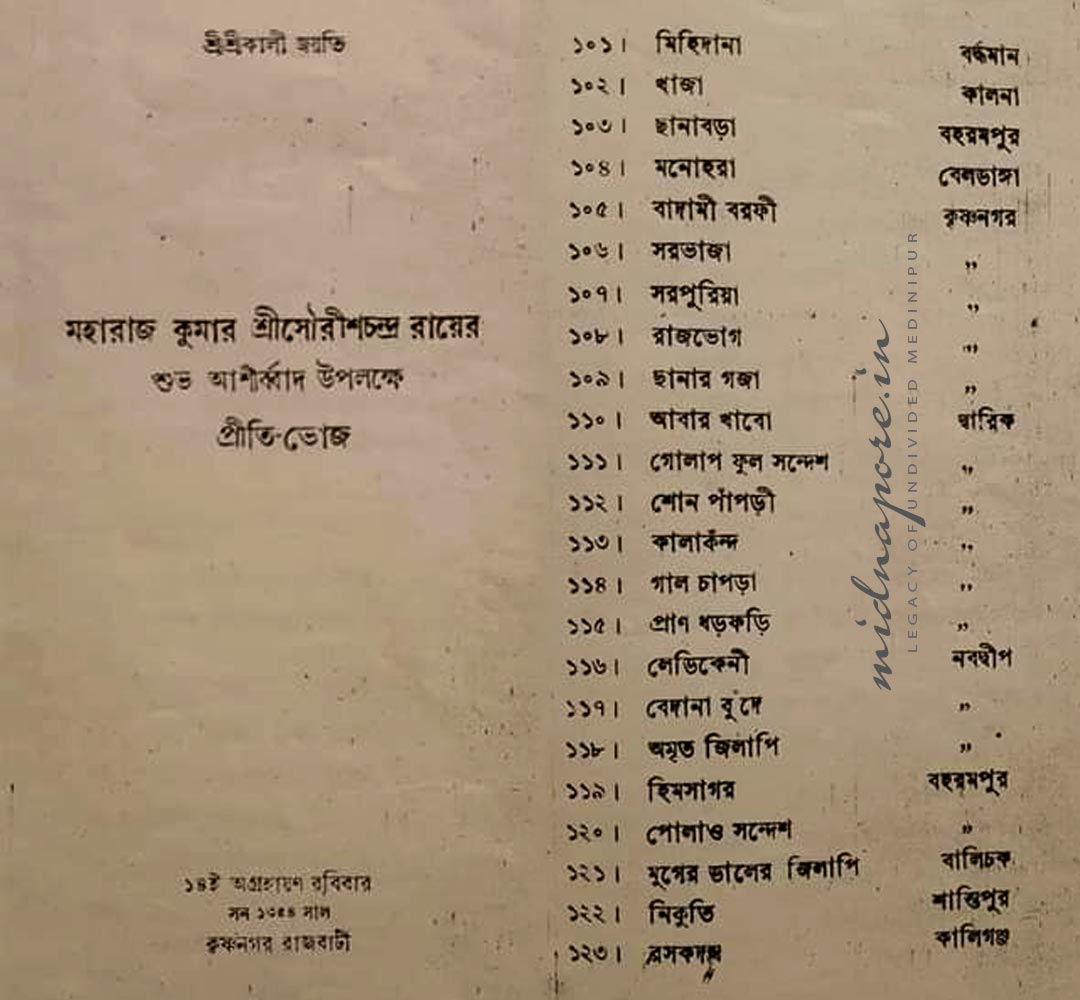 শ্রীশ্রীকালী জয়তি
মহারাজ কুমার শ্রীসৌরীশচন্দ্র রায়ের
শুভ আশীর্ব্বাদ উপলক্ষে
প্রীতি-ভোজ
১৪ই অগ্রহায়ণ রবিবার
সন ১৩৫৪ সাল
কৃষ্ণনগর রাজবাটী
১০১। মিহিদানা বর্দ্ধমান
১০২। খাজা কালনা
১০৩। ছানাবড়া বহরমপুর
১০৪। মনোহরা বেলডাঙ্গা
১০৫। বাদামী বরফী কৃষ্ণনগর
১০৬। সরভাজা "
১০৭। সরপুরিয়া "
১০৮। রাজভোগ "
১০৯। ছানার গজা "
১১০। আবার খাবো দ্বারিক
১১১। গোলাপ ফুল সন্দেশ "
১১২। শোন পাঁপড়ী "
১১৩। কালাকঁন্দ "
১১৪। গাল চাপড়া "
১১৫। প্রাণ ধড়ফড়ি "
১১৬। লেডিকেনী নবদ্বীপ
১১৭। বেদানা বুঁদে "
১১৮। অমৃত জিলাপি "
১১৯। হিমসাগর বহরমপুর
১২০। পোলাও সন্দেশ "
১২১। মুগের ডালের জিলাপি বালিচক
১২২। নিকুতি শান্তিপুর
১২৩। রসকদম্ব কালিগঞ্জ
midnapore.in
LEGACY OF UNDIVIDED MEDINIPUR